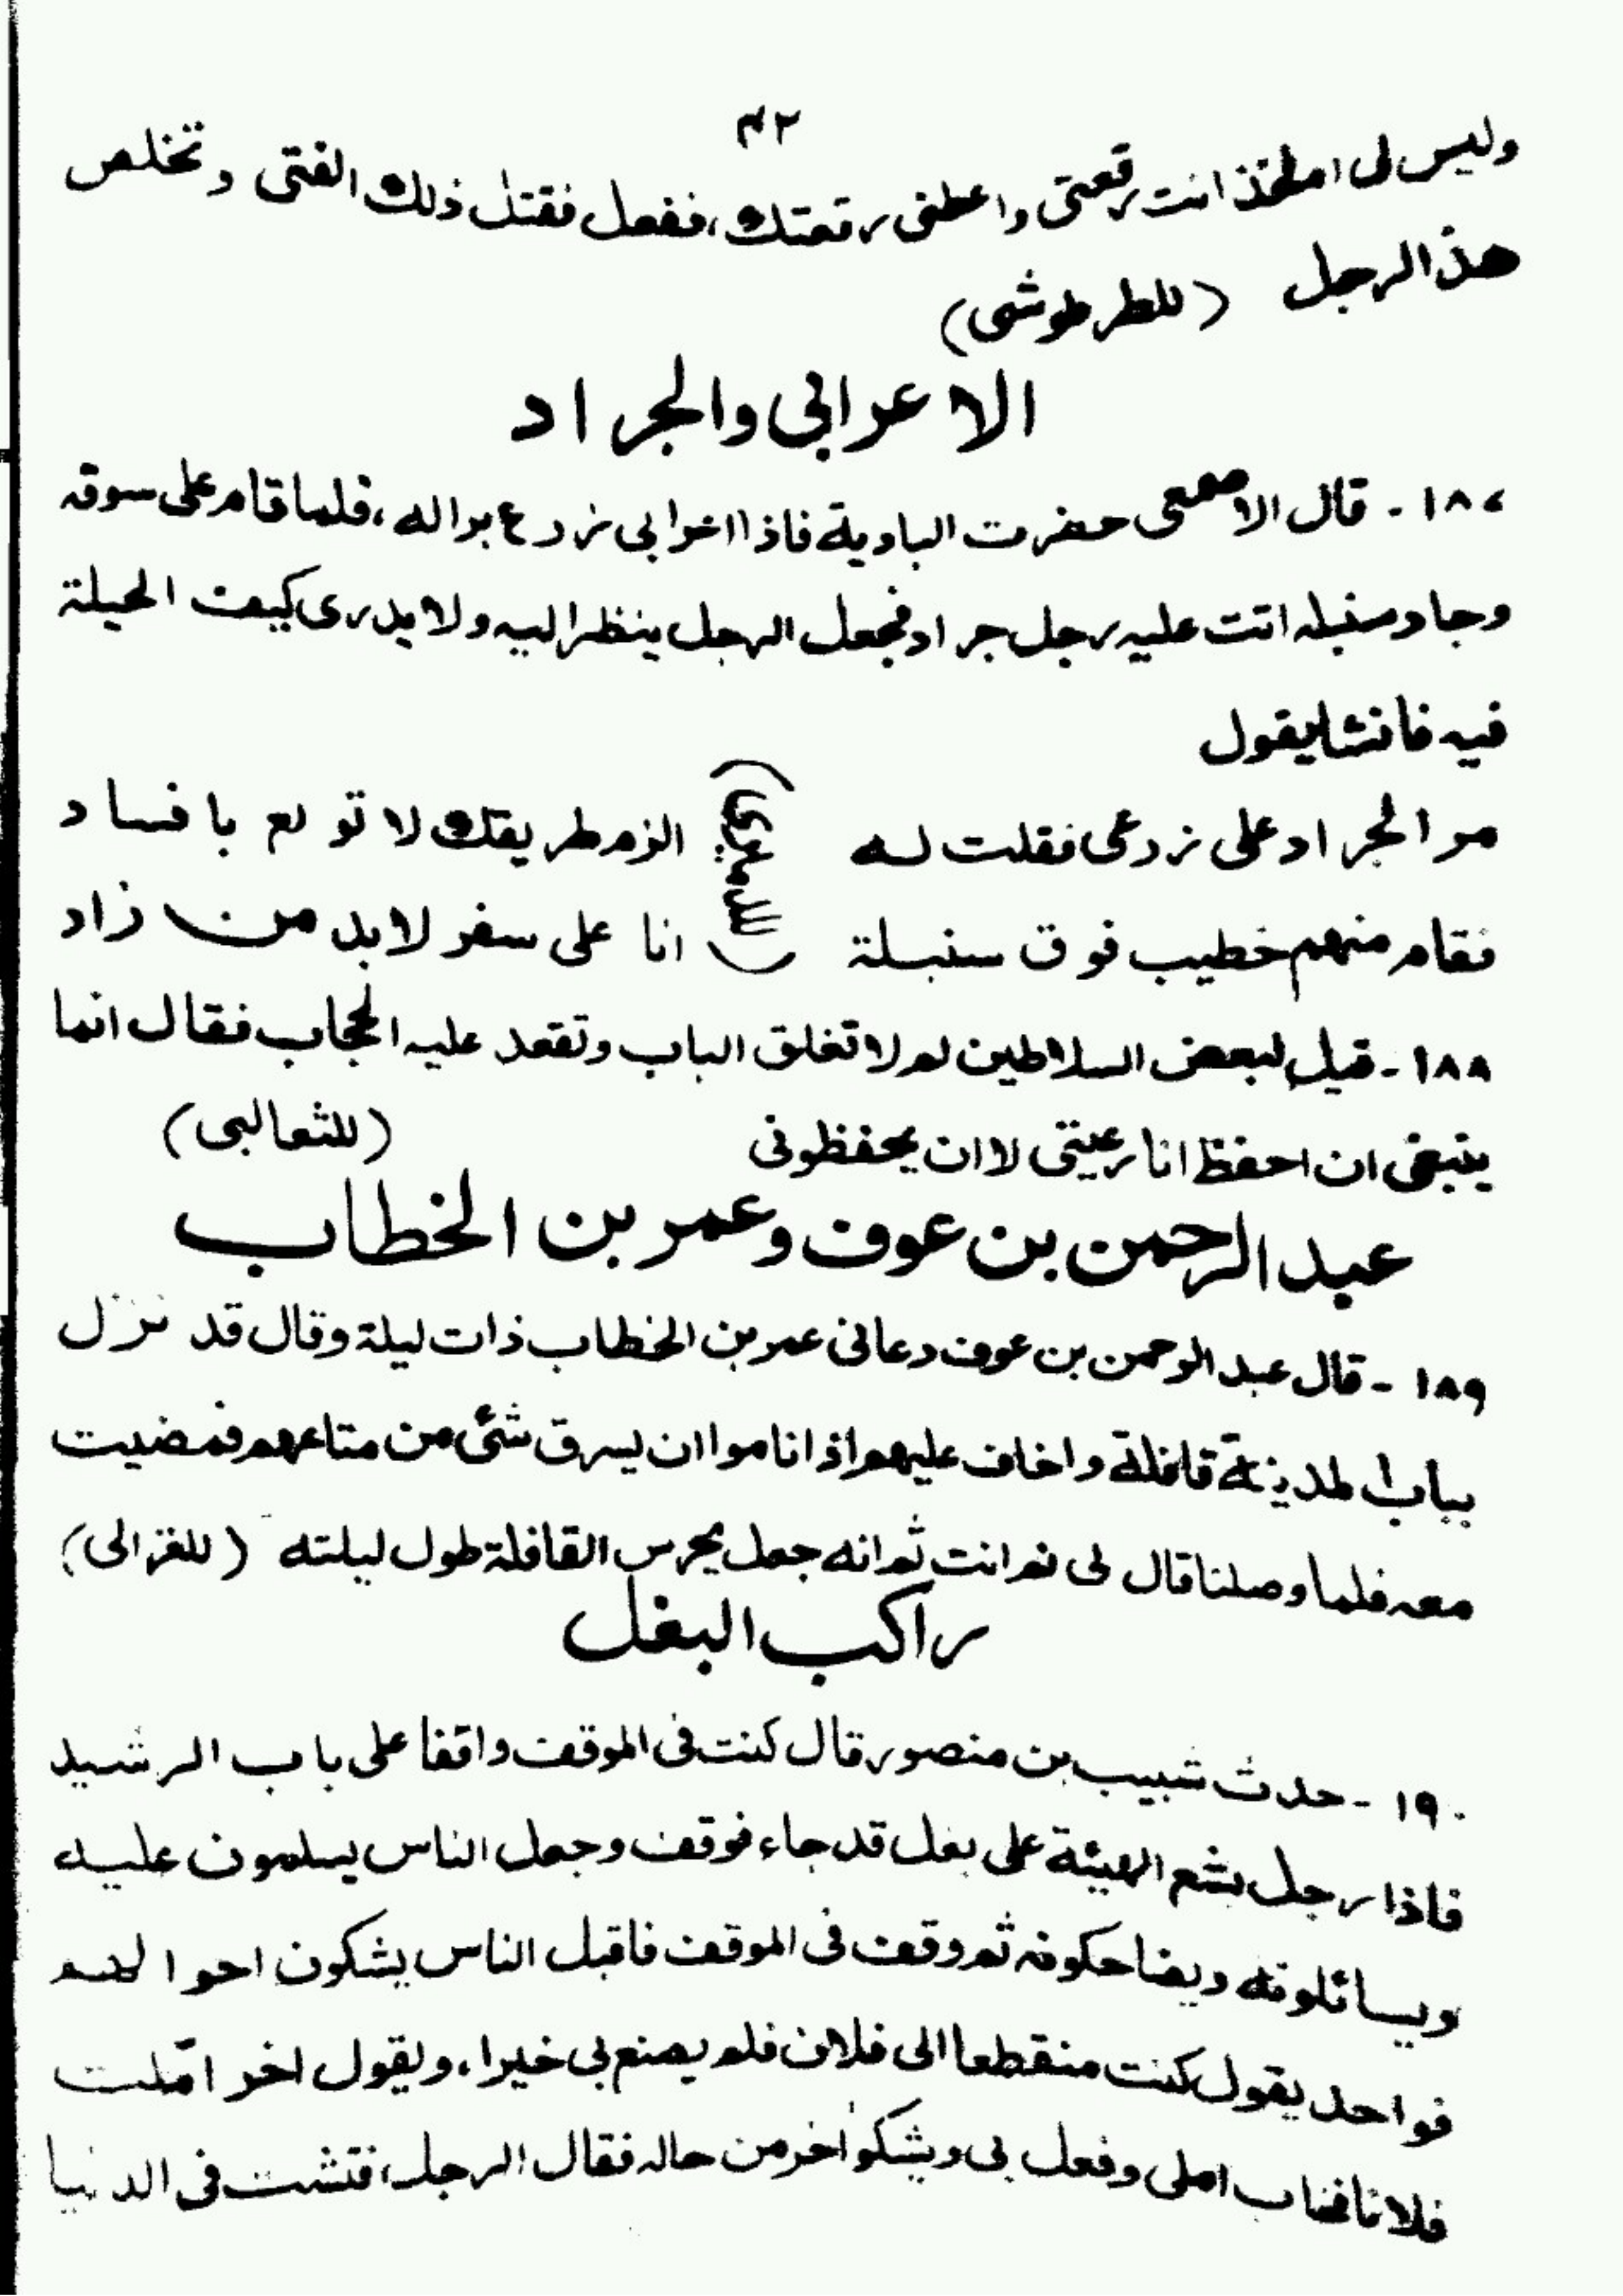 ٤٢
وليس لى ام فخذ انت رقعتى واعطنى رقعتك، ففعل فقتل ذلك الفتى وتخلص
هذا الرجل (للطرطوشى)
الاعرابى والجراد
١٨٧ - قال الاصمعى حضرت البادية فاذا اعرابى زرع برا له، فلما قام على سوقه
وجاد سنبله اتت عليه رجل جراد فجعل الرجل ينظر اليه ولا يدرى كيف الحيلة
فيه فانشا يقول
مر الجراد على زرعى فقلت له الزم طريقك لا تولع بافساد
فقام منهم خطيب فوق سنبلة انا على سفر لا بد من زاد
١٨٨ - قيل لبعض السلاطين لم لا تغلق الباب وتقعد عليه الحجاب فقال انما
ينبغى ان احفظ انا رعيتى لا ان يحفظونى (للثعالبى)
عبد الرحمن بن عوف وعمر بن الخطاب
١٨٩ - قال عبد الرحمن بن عوف دعانى عمر بن الخطاب ذات ليلة وقال قد نزل
بباب المدينة قافلة واخاف عليهم اذا ناموا ان يسرق شئ من متاعهم فمضيت
معه فلما وصلنا قال لى نم انت ثم انه جعل يحرس القافلة طول ليلته (للغزالى)
راكب البغل
١٩٠ - حدث شبيب بن منصور قال كنت فى الموقف واقفا على باب الرشيد
فاذا رجل بشع الهيئة على بغل قد جاء فوقف وجعل الناس يسلمون عليه
ويسائلونه ويضاحكونه ثم وقف فى الموقف فاقبل الناس يشكون احوالهم
فواحد يقول كنت منقطعا الى فلان فلم يصنع بى خيرا، ويقول اخر امّلت
فلانا فخاب املى وفعل بى ويشكو اخر من حاله فقال الرجل، فتشت فى الدنيا